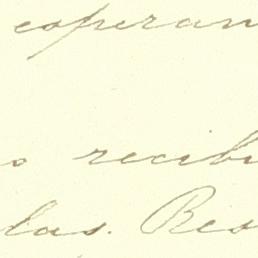 esperan
o recibi
las. Res